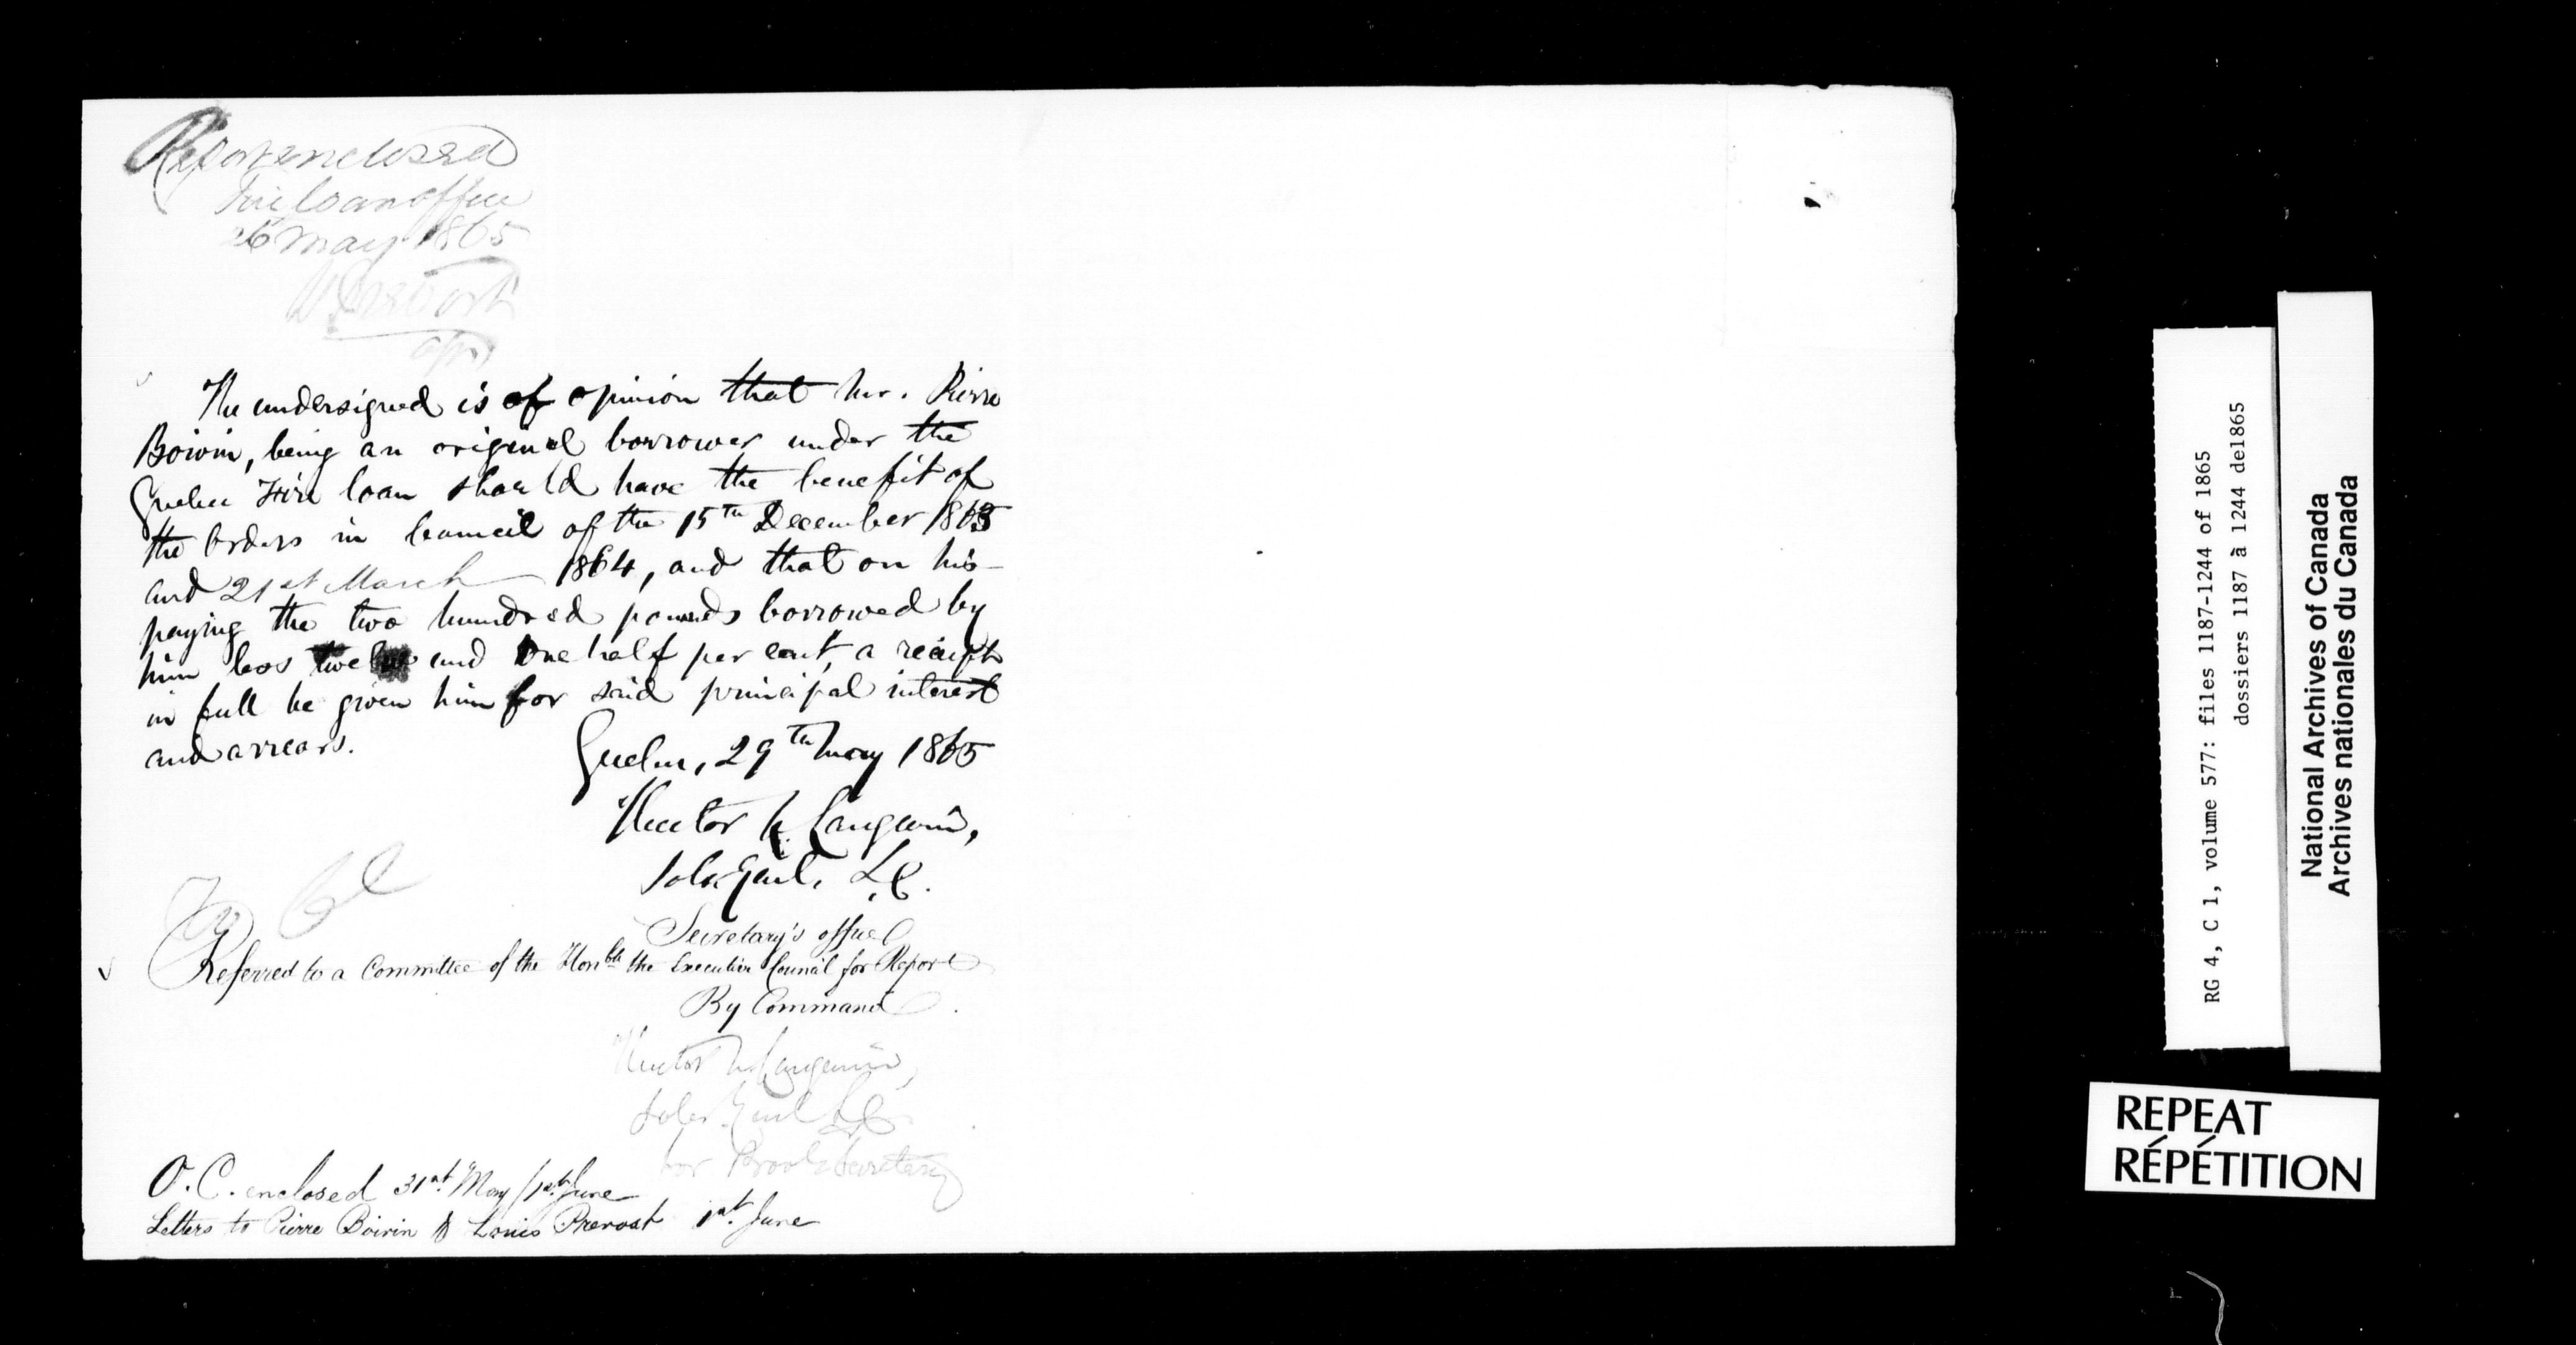 Report enclosed
Fire loan office
26 May 1865
The undersigned is of opinion that Mr. Pierre
Boivin, being an original borrower under the
Quebec Fire loan should have the benefit of
the orders in Council of the 15th December 1863
and 21st March 1864, and that on his
paying the two hundred pounds borrowed by
him less twelve and One half per cent, a receipt
in full be given him for said principal interest
and arrears.
Quebec, 29th May 1865
Hector L. Langevin,
Solr. Genl. L.C.
Secretary's office
Referred to a Committee of the Honble the Executive Council for Report
By Command
Hector L. Langevin,
Solr. Genl L.C.
for Provl. Secretary
O.C. enclosed 31st May/1st June
Letters to Pierre Boivin & Louis Prevost 1st June
RG 4, C 1, volume 577: files 1187-1244 of 1865
dossiers 1187 à 1244 de1865
National Archives of Canada
Archives nationales du Canada
REPEAT
RÉPÉTITION